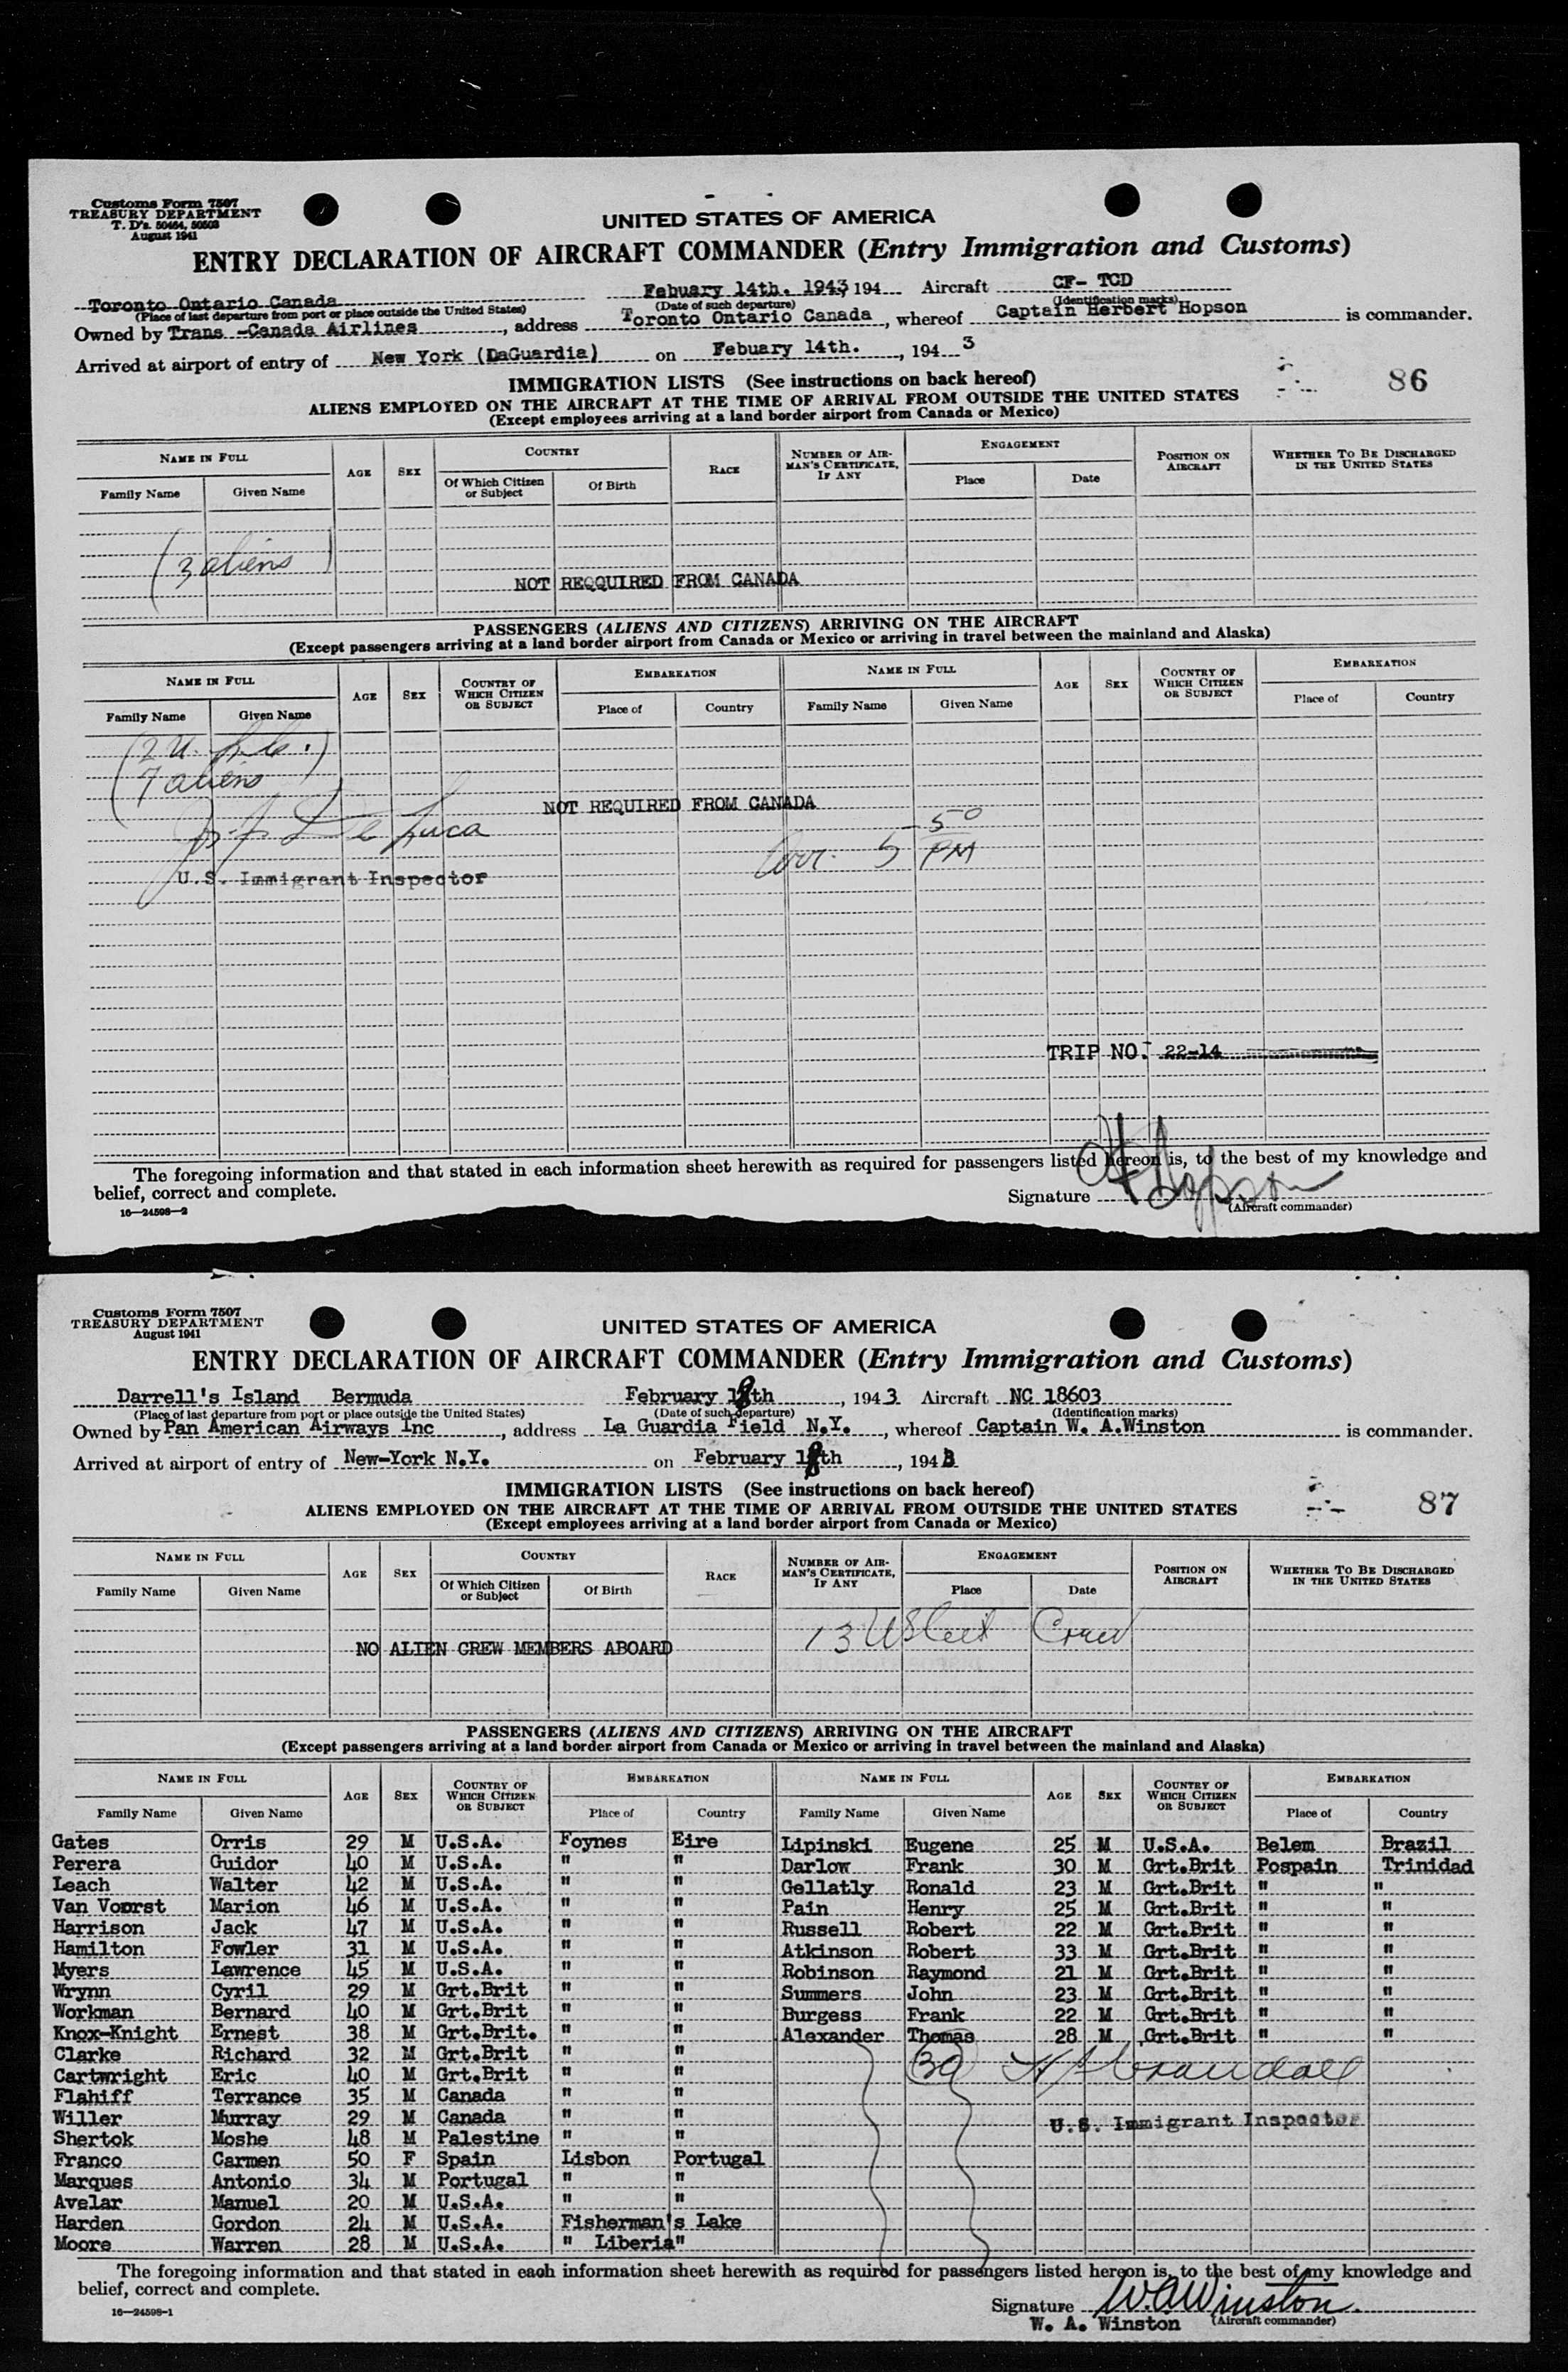 Customs Form 7507
TREASURY DEPARTMENT
T. D's. 50464, 50503
August 1941
UNITED STATES OF AMERICA
ENTRY DECLARATION OF AIRCRAFT COMMANDER (Entry Immigration and Customs)
Toronto Ontario Canada Febuary 14th. 1943, 194 Aircraft CF- TCD
(Place of last departure from port or place outside the United States) (Date of such departure) (Identification marks)
Owned by Trans -Canada Airlines, address Toronto Ontario Canada, whereof Captain Herbert Hopson is commander.
Arrived at airport of entry of New York (DaGuardia) on Febuary 14th., 194 3
IMMIGRATION LISTS (See instructions on back hereof)
86
ALIENS EMPLOYED ON THE AIRCRAFT AT THE TIME OF ARRIVAL FROM OUTSIDE THE UNITED STATES
(Except employees arriving at a land border airport from Canada or Mexico)
NAME IN FULL AGE SEX COUNTRY RACE NUMBER OF AIRMAN'S CERTIFICATE, IF ANY ENGAGEMENT POSITION ON AIRCRAFT WHETHER TO BE DISCHARGED IN THE UNITED STATES
Family Name Given Name Of Which Citizen or Subject Of Birth Place Date
(3 aliens)
NOT REQQUIRED FROM CANADA
PASSENGERS (ALIENS AND CITIZENS) ARRIVING ON THE AIRCRAFT
(Except passengers arriving at a land border airport from Canada or Mexico or arriving in travel between the mainland and Alaska)
NAME IN FULL AGE SEX COUNTRY OF WHICH CITIZEN OR SUBJECT EMBARKATION NAME IN FULL AGE SEX COUNTRY OF WHICH CITIZEN OR SUBJECT EMBARKATION
Family Name Given Name Place of Country Family Name Given Name Place of Country
(2 U.
7 aliens)
NOT REQUIRED FROM CANADA
De Luca
Arr. 5 50 PM
U.S. Immigrant Inspector
TRIP NO. 22-14
The foregoing information and that stated in each information sheet herewith as required for passengers listed hereon is, to the best of my knowledge and
belief, correct and complete.
Signature H Hopson
(Aircraft commander)
16—24598—2
Customs Form 7507
TREASURY DEPARTMENT
August 1941
UNITED STATES OF AMERICA
ENTRY DECLARATION OF AIRCRAFT COMMANDER (Entry Immigration and Customs)
Darrell's Island Bermuda February 18th, 1943 Aircraft NC 18603
(Place of last departure from port or place outside the United States) (Date of such departure) (Identification marks)
Owned by Pan American Airways Inc, address La Guardia Field N.Y., whereof Captain W. A.Winston is commander.
Arrived at airport of entry of New-York N.Y. on February 18th, 1943
IMMIGRATION LISTS (See instructions on back hereof)
87
ALIENS EMPLOYED ON THE AIRCRAFT AT THE TIME OF ARRIVAL FROM OUTSIDE THE UNITED STATES
(Except employees arriving at a land border airport from Canada or Mexico)
NAME IN FULL AGE SEX COUNTRY RACE NUMBER OF AIRMAN'S CERTIFICATE, IF ANY ENGAGEMENT POSITION ON AIRCRAFT WHETHER TO BE DISCHARGED IN THE UNITED STATES
Family Name Given Name Of Which Citizen or Subject Of Birth Place Date
NO ALIEN CREW MEMBERS ABOARD 13 Crew
PASSENGERS (ALIENS AND CITIZENS) ARRIVING ON THE AIRCRAFT
(Except passengers arriving at a land border airport from Canada or Mexico or arriving in travel between the mainland and Alaska)
NAME IN FULL AGE SEX COUNTRY OF WHICH CITIZEN OR SUBJECT EMBARKATION NAME IN FULL AGE SEX COUNTRY OF WHICH CITIZEN OR SUBJECT EMBARKATION
Family Name Given Name Place of Country Family Name Given Name Place of Country
Gates Orris 29 M U.S.A. Foynes Eire Lipinski Eugene 25 M U.S.A. Belem Brazil
Perera Guidor 40 M U.S.A. " " Darlow Frank 30 M Grt.Brit Pospain Trinidad
Leach Walter 42 M U.S.A. " " Gellatly Ronald 23 M Grt.Brit " "
Van Voorst Marion 46 M U.S.A. " " Pain Henry 25 M Grt.Brit " "
Harrison Jack 47 M U.S.A. " " Russell Robert 22 M Grt.Brit " "
Hamilton Fowler 31 M U.S.A. " " Atkinson Robert 33 M Grt.Brit " "
Myers Lawrence 45 M U.S.A. " " Robinson Raymond 21 M Grt.Brit " "
Wrynn Cyril 29 M Grt.Brit " " Summers John 23 M Grt.Brit " "
Workman Bernard 40 M Grt.Brit " " Burgess Frank 22 M Grt.Brit " "
Knox-Knight Ernest 38 M Grt.Brit. " " Alexander Thomas 28 M Grt.Brit " "
Clarke Richard 32 M Grt.Brit " " 30 Crandall
Cartwright Eric 40 M Grt.Brit " "
Flahiff Terrance 35 M Canada " "
Willer Murray 29 M Canada " " U.S. Immigrant Inspector
Shertok Moshe 48 M Palestine " "
Franco Carmen 50 F Spain Lisbon Portugal
Marques Antonio 34 M Portugal " "
Avelar Manuel 20 M U.S.A. " "
Harden Gordon 24 M U.S.A. Fisherman's Lake
Moore Warren 28 M U.S.A. " Liberia"
The foregoing information and that stated in each information sheet herewith as required for passengers listed hereon is, to the best of my knowledge and
belief, correct and complete.
Signature W.A.Winston.
16—24598-1
W. A. Winston (Aircraft commander)